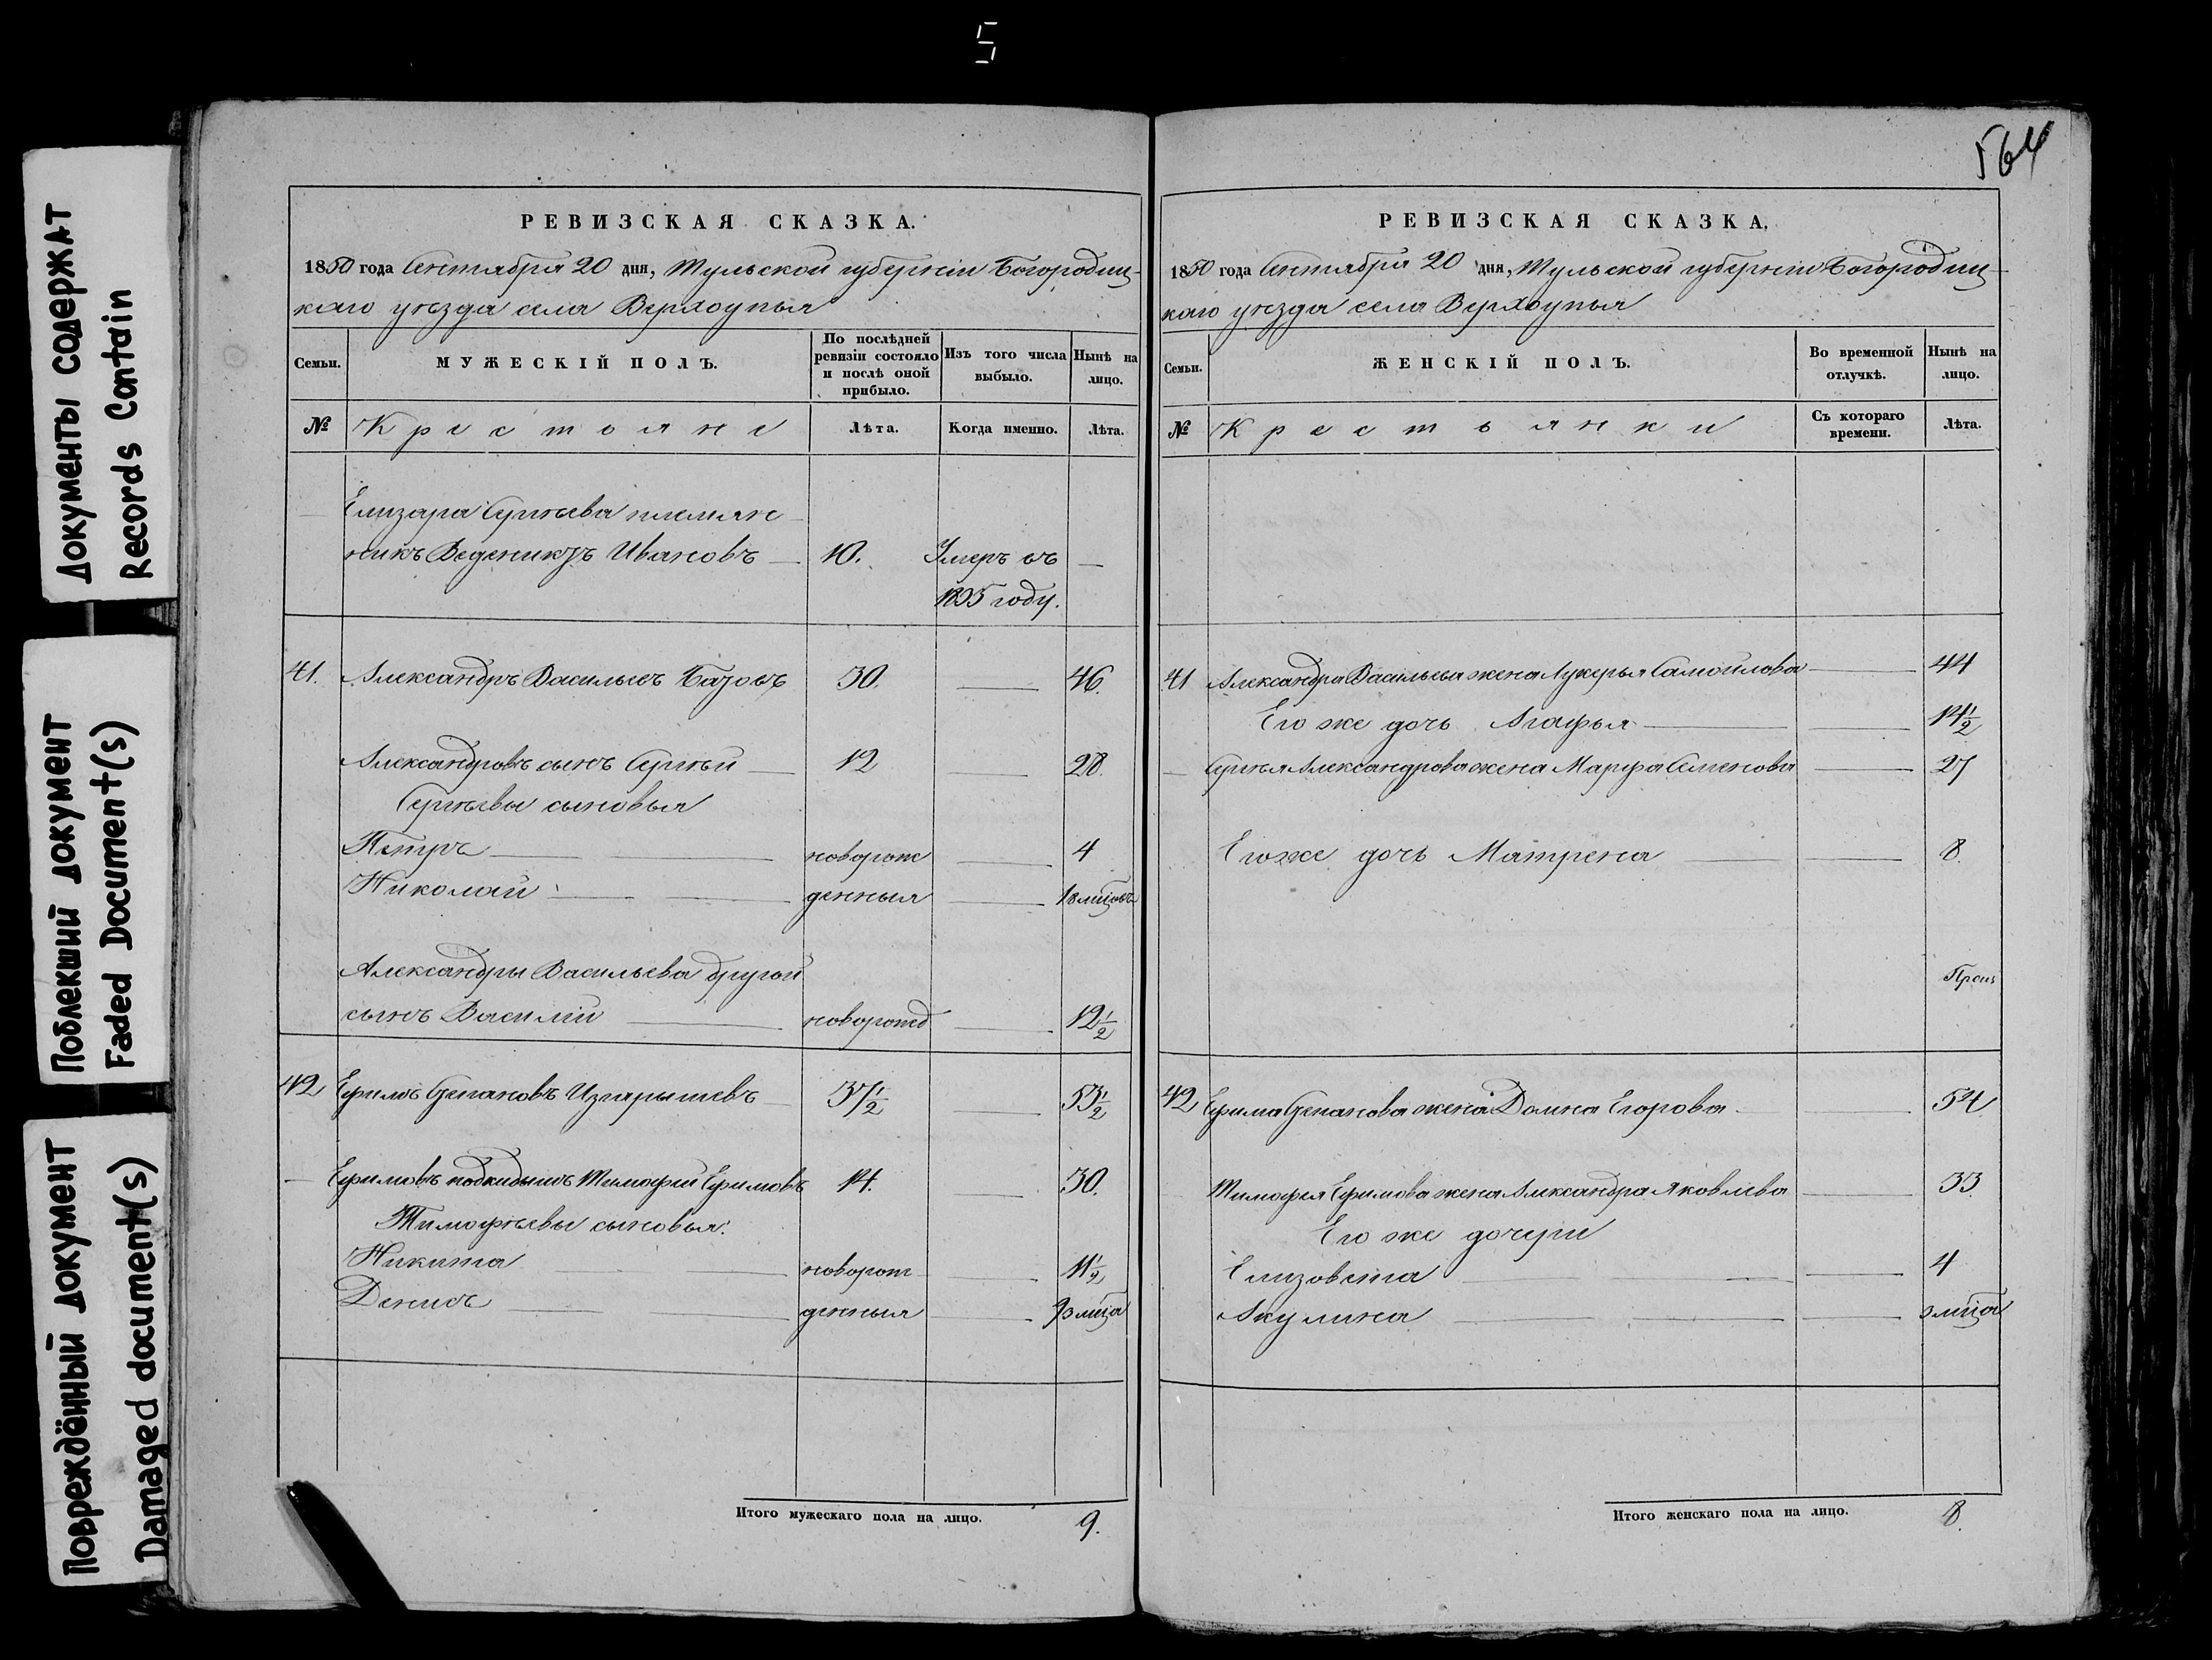 5
564
Документы содержат
Records Contain
Поблекший документ
Faded Document(s)
Повреждённый документ
Damaged document(s)
РЕВИЗСКАЯ СКАЗКА.
1850 года Сентября 20 дня, Тульской губерніи Богородиц-
каго уѣзда села Верхоупья
Семьи.
МУЖЕСКІЙ ПОЛЪ.
По послѣдней ревизіи состояло и послѣ оной прибыло.
Изъ того числа выбыло.
Нынѣ на лицо.
№ Крестьяне Лѣта. Когда именно. Лѣта.
Елизара Сергѣева племян
никъ Ивановъ — 10. Умеръ въ —
1835 году.
41. Александръ Васильевъ 30. — 46.
Александровъ сынъ Сергѣй — 12 — 28.
Сергѣевы сыновья
Петръ — новорож — 4
Николай — денныя —
Александры Васильева другой
сынъ Василій — новорожд — 12½
42 Ефимъ Степановъ 37½ — 53½
— Ефимовъ подкидышъ Тимофей Ефимовъ 14. — 30.
Тимофѣевы сыновья:
Никита — новорож — 11½
Денисъ — денныя —
Итого мужескаго пола на лицо. 9.
РЕВИЗСКАЯ СКАЗКА,
1850 года Сентября 20 дня, Тульской губерніи Богородиц-
каго уѣзда села Верхоупья
Семьи.
ЖЕНСКІЙ ПОЛЪ.
Во временной отлучкѣ.
Нынѣ на лицо.
№ Крестьянки Съ котораго времени. Лѣта.
41 Александра Васильева жена Лукерья Самойлова — 44
Его же дочь Агафья — 14½
— Сергѣя Александрова жена Марфа Семенова — 27
Его же дочь Матрена — 8.
42 Ефима Степанова жена Домна Егорова — 54
Тимофея Ефимова жена Александра Яковлева — 33.
Его же дочери
Елизовета — 4
Акулина — 3 мѣсца
Итого женскаго пола на лицо. 8.